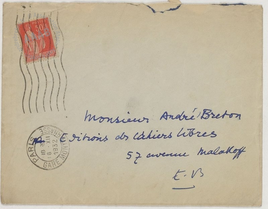 Monsieur André Breton
Editions des Cahiers Libres
57 avenue Malakoff
E.V
PARIS